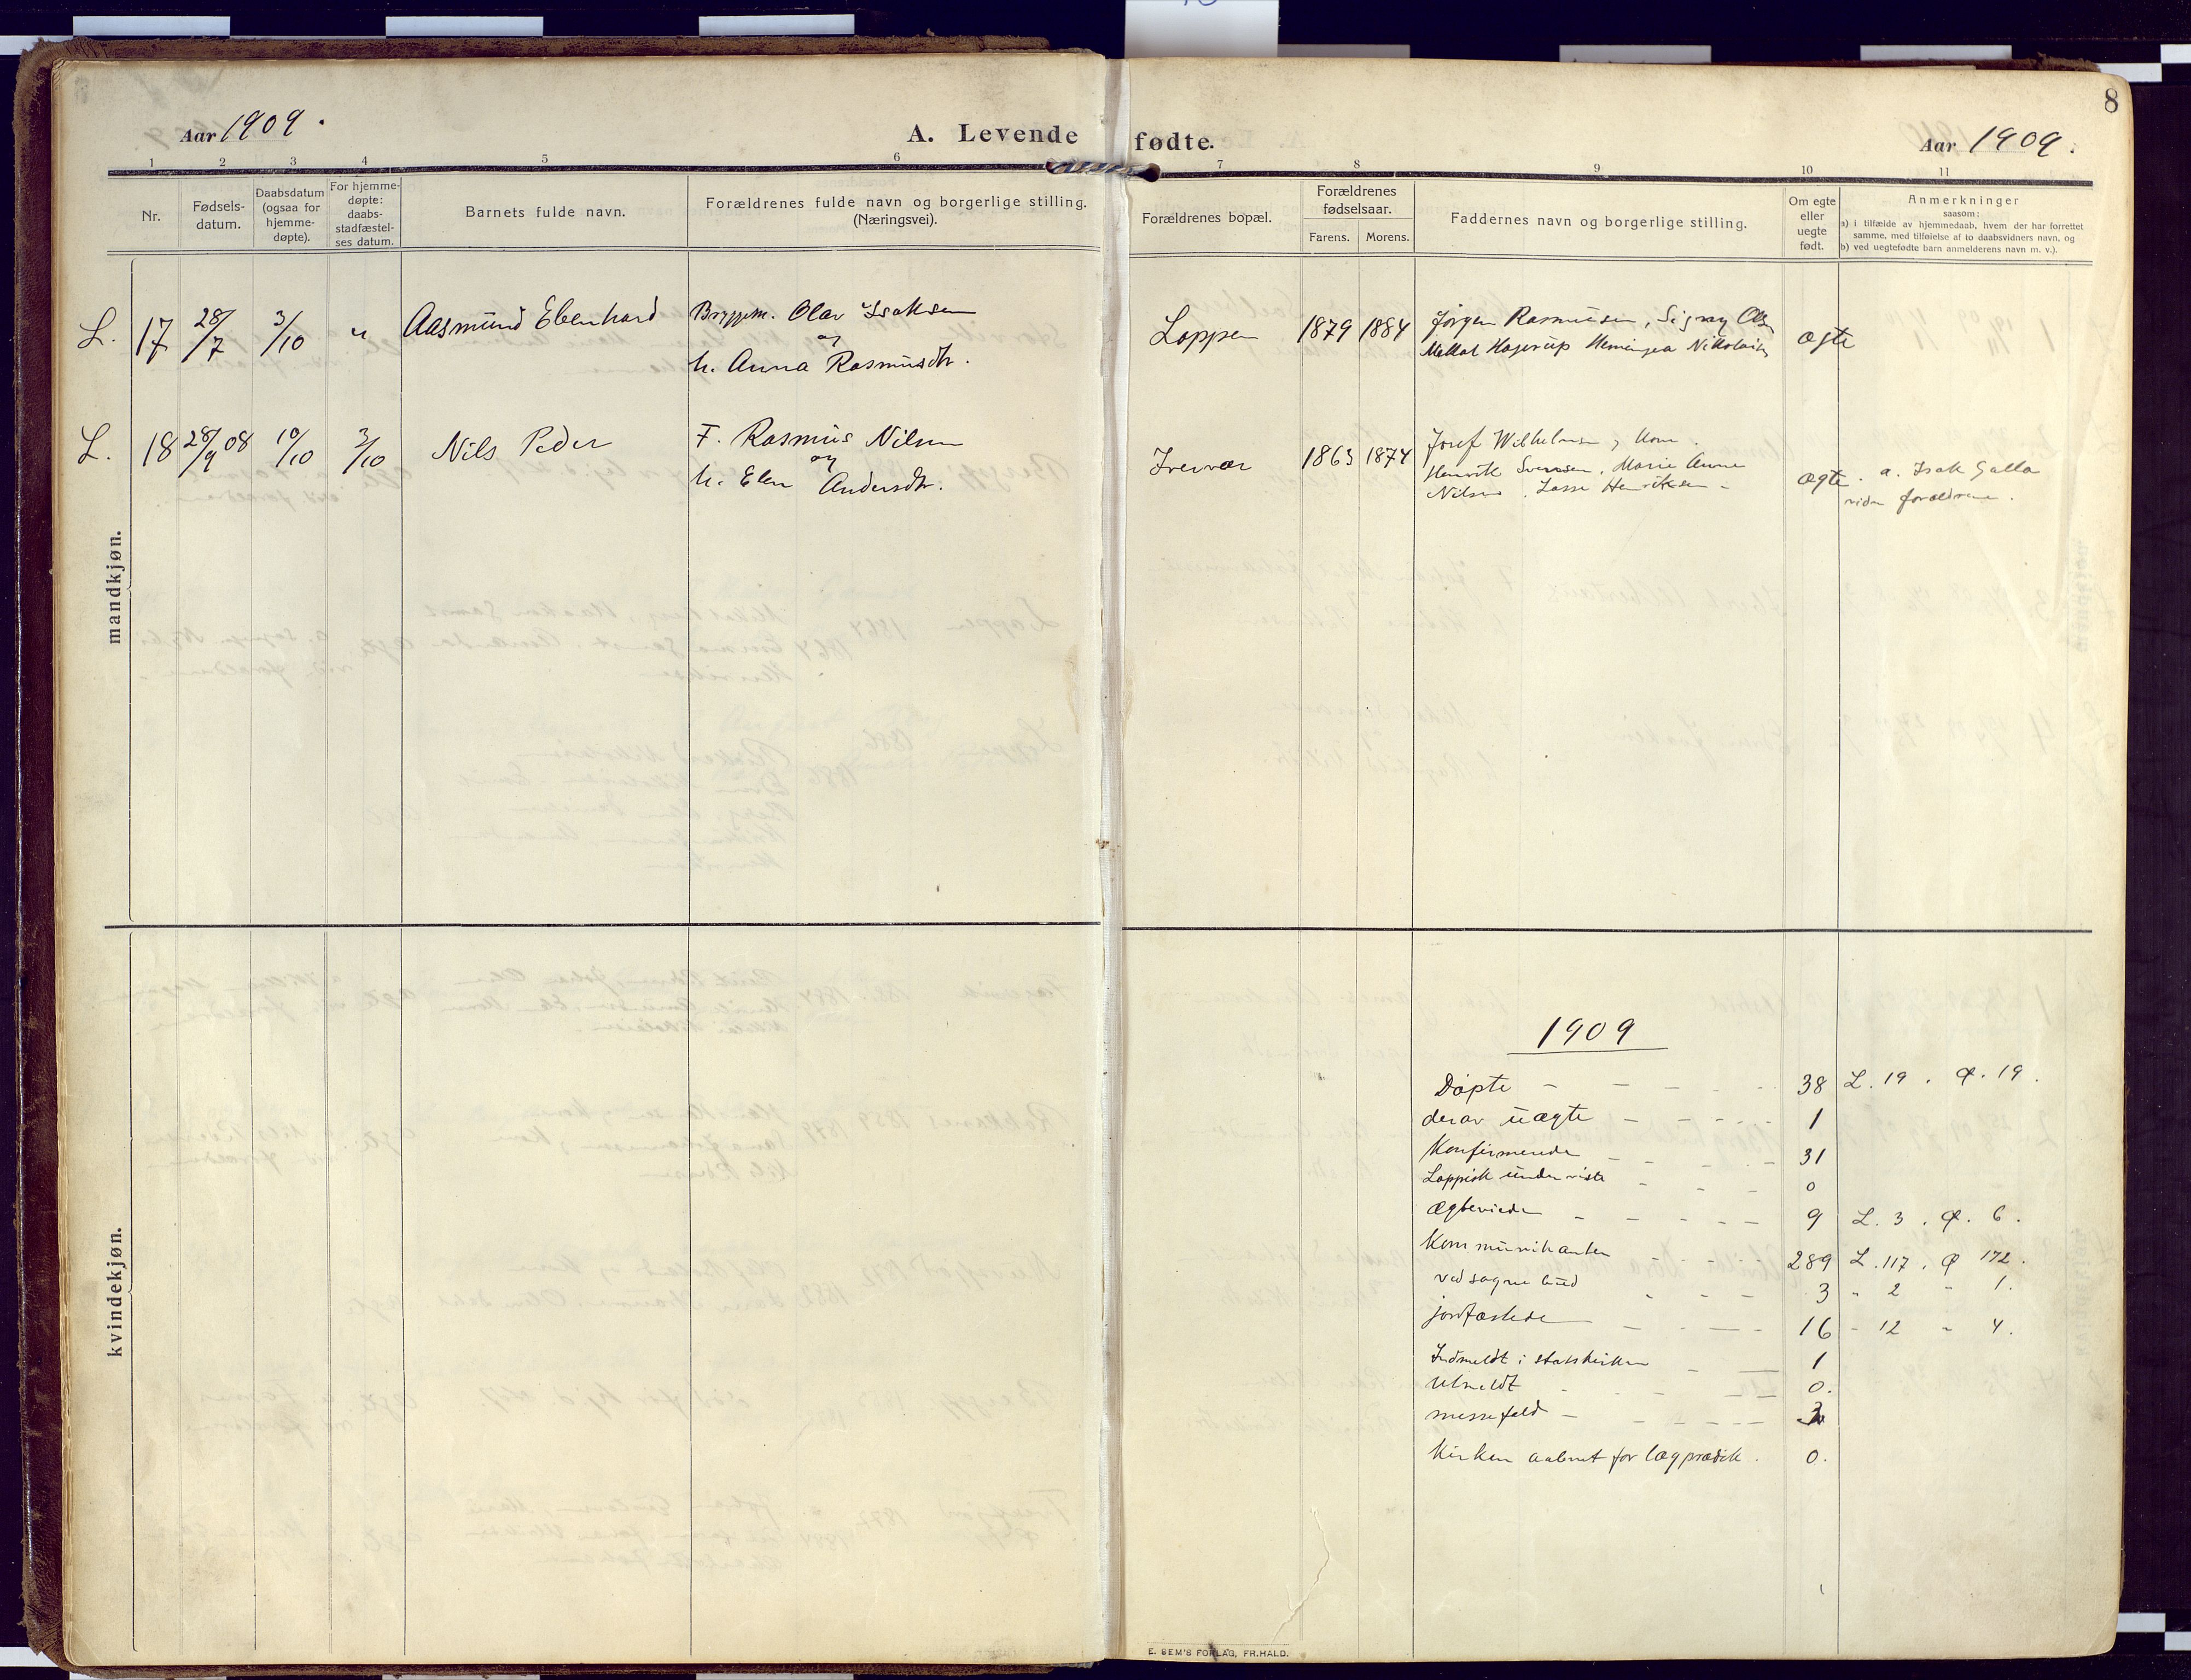 8
Aar 1909.
A. Levende fødte.
Aar 1909.
1 2 3 4 5 6 7 8 9 10 11
Nr.
Fødsels-
datum.
Daabsdatum
(ogsaa for
hjemme-
døpte).
For hjemme-
døpte:
daabs-
stadfæstel-
ses datum.
Barnets fulde navn.
Forældrenes fulde navn og borgerlige stilling.
(Næringsvei).
Forældrenes bopæl.
Forældrenes
fødselsaar.
Farens. Morens.
Faddernes navn og borgerlige stilling.
Om egte
eller
uegte
født.
Anmerkninger
saasom:
a) i tilfælde av hjemmedaab, hvem der har forrettet
samme, med tilføielse af to daabsvidners navn, og
b) ved uegtefødte barn anmelderens navn m. v.).
mandkjøn.
L. 17 28/7 3/10 " Aasmund Ebenhard
Olav Isaksen
og
h. Anna Rasmusdtr.
Loppen 1879 1884
Jørgen Rasmussen, Signy Ols.
Hagerup Nikolais.
ægte
L. 18 28/9 08 10/10 3/10 Nils Peder
F. Rasmus Nilsen
og
h. Elen Andersdtr.
1863 1874
Josef Wilhelmsen, Kone.
Henrik Svensen, Marie Anne
Nilsen. Lasse Henriksen
ægte. a. Isak Galla
forældrene.
kvindekjøn.
1909
Døpte 38 L. 19. Q. 19.
derav uægte 1
Konfirmerede 31
Lappisk underviste 0
Ægteviede 9 L. 3. Q. 6.
Kommunikanter 289 L. 117. Q 172.
ved sognebud 3 " 2 " 1.
jordfæstede 16 - 12 - 4.
Indmeldt i statskirken 1
Utmeldt 0.
messefald
Kirken aabnet for lægprædik. 0.
E. SEM'S FORLAG, FR.HALD.